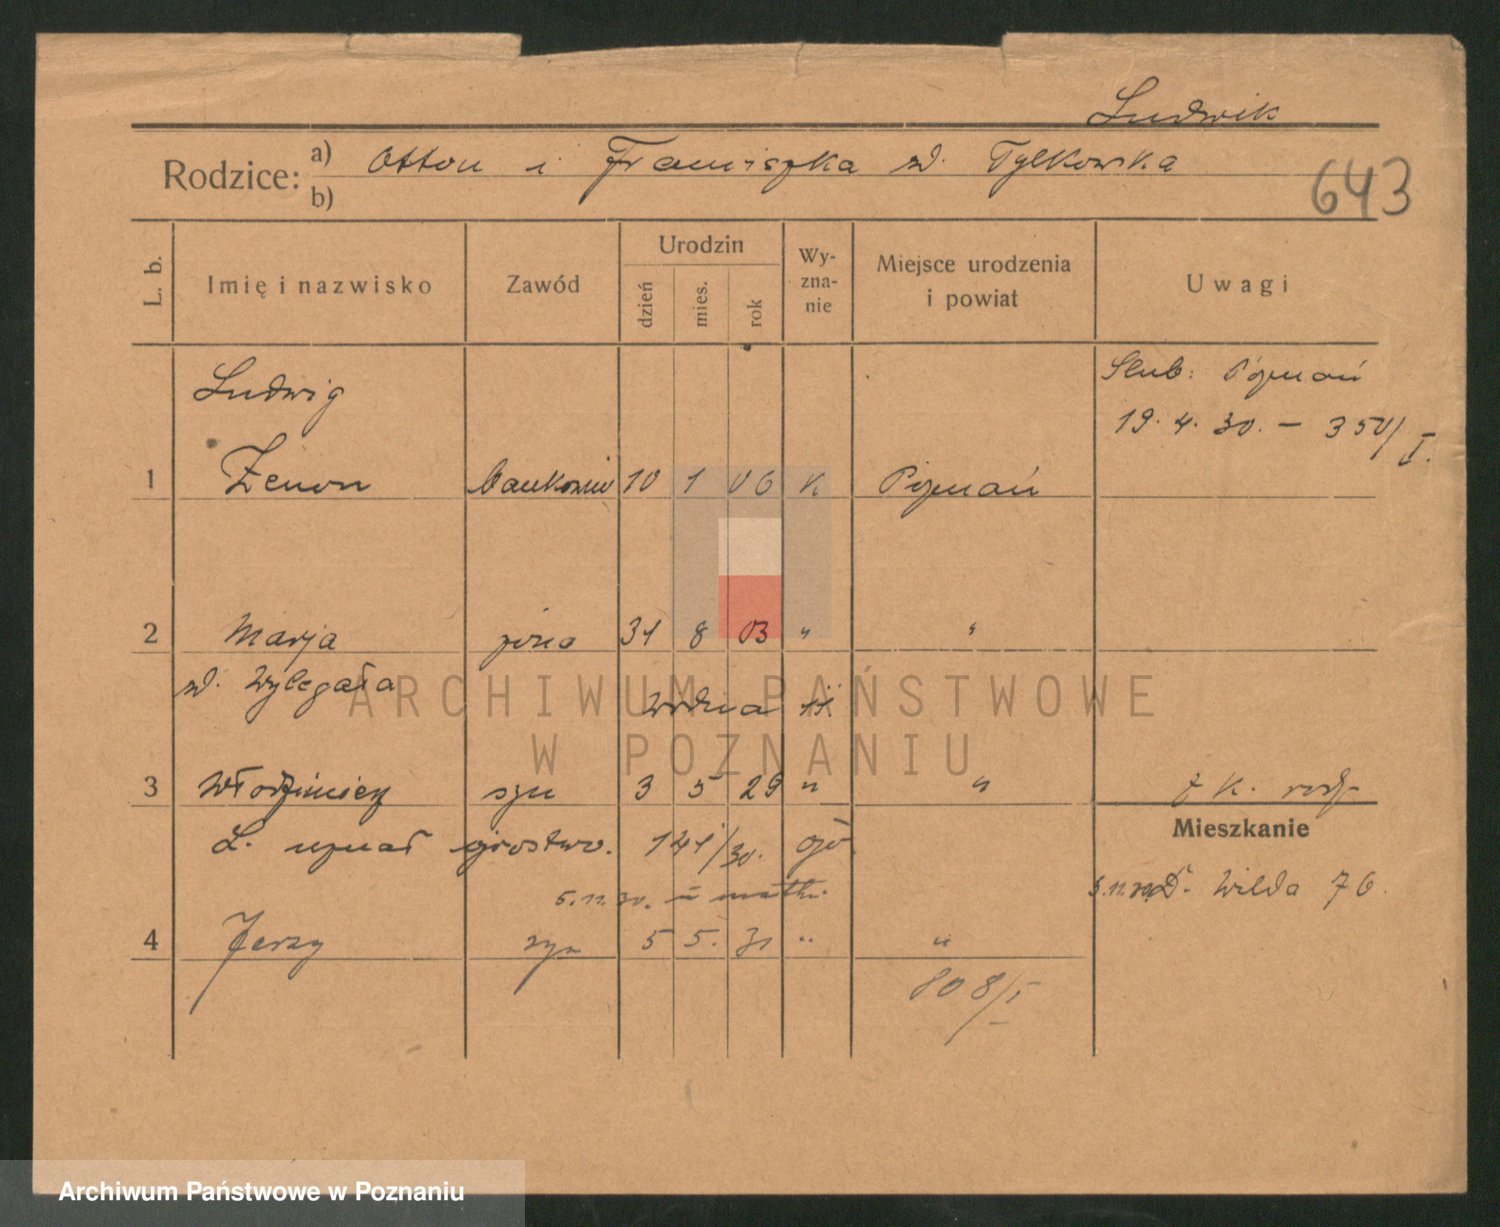 Ludwik
Rodzice: a) Otton i Franciszka zd. Tylkowska
b)
643
L. b. Imię i nazwisko Zawód Urodzin dzień mies. rok Wyznanie Miejsce urodzenia i powiat Uwagi
Ludwig Ślub: Poznań
19. 4. 30. – 350/I.
1 Zenon bankowiec 10 1 06 K Poznań
2 Marja żona 31 8 03 " "
zd. Wylegała Wodna 11.
3 Włodzimierz syn 3 5 29 " "
L. uznał ojcostwo. 141/30.
Mieszkanie
5.11.30. u matki. 5.11.30. D. Wilda 76.
4 Jerzy syn 5 5. 31 " "
808/I
ARCHIWUM PAŃSTWOWE
W POZNANIU
Archiwum Państwowe w Poznaniu